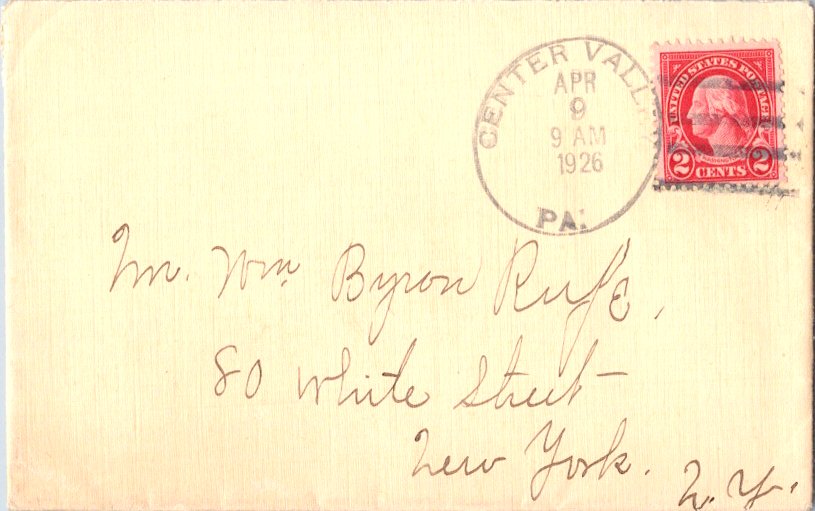 CENTER VALLEY
APR
9
9 AM
1926
PA.
UNITED STATES POSTAGE
2 CENTS 2
Mr. Wm Byron Rufe,
80 White Street
New York.
N.Y.